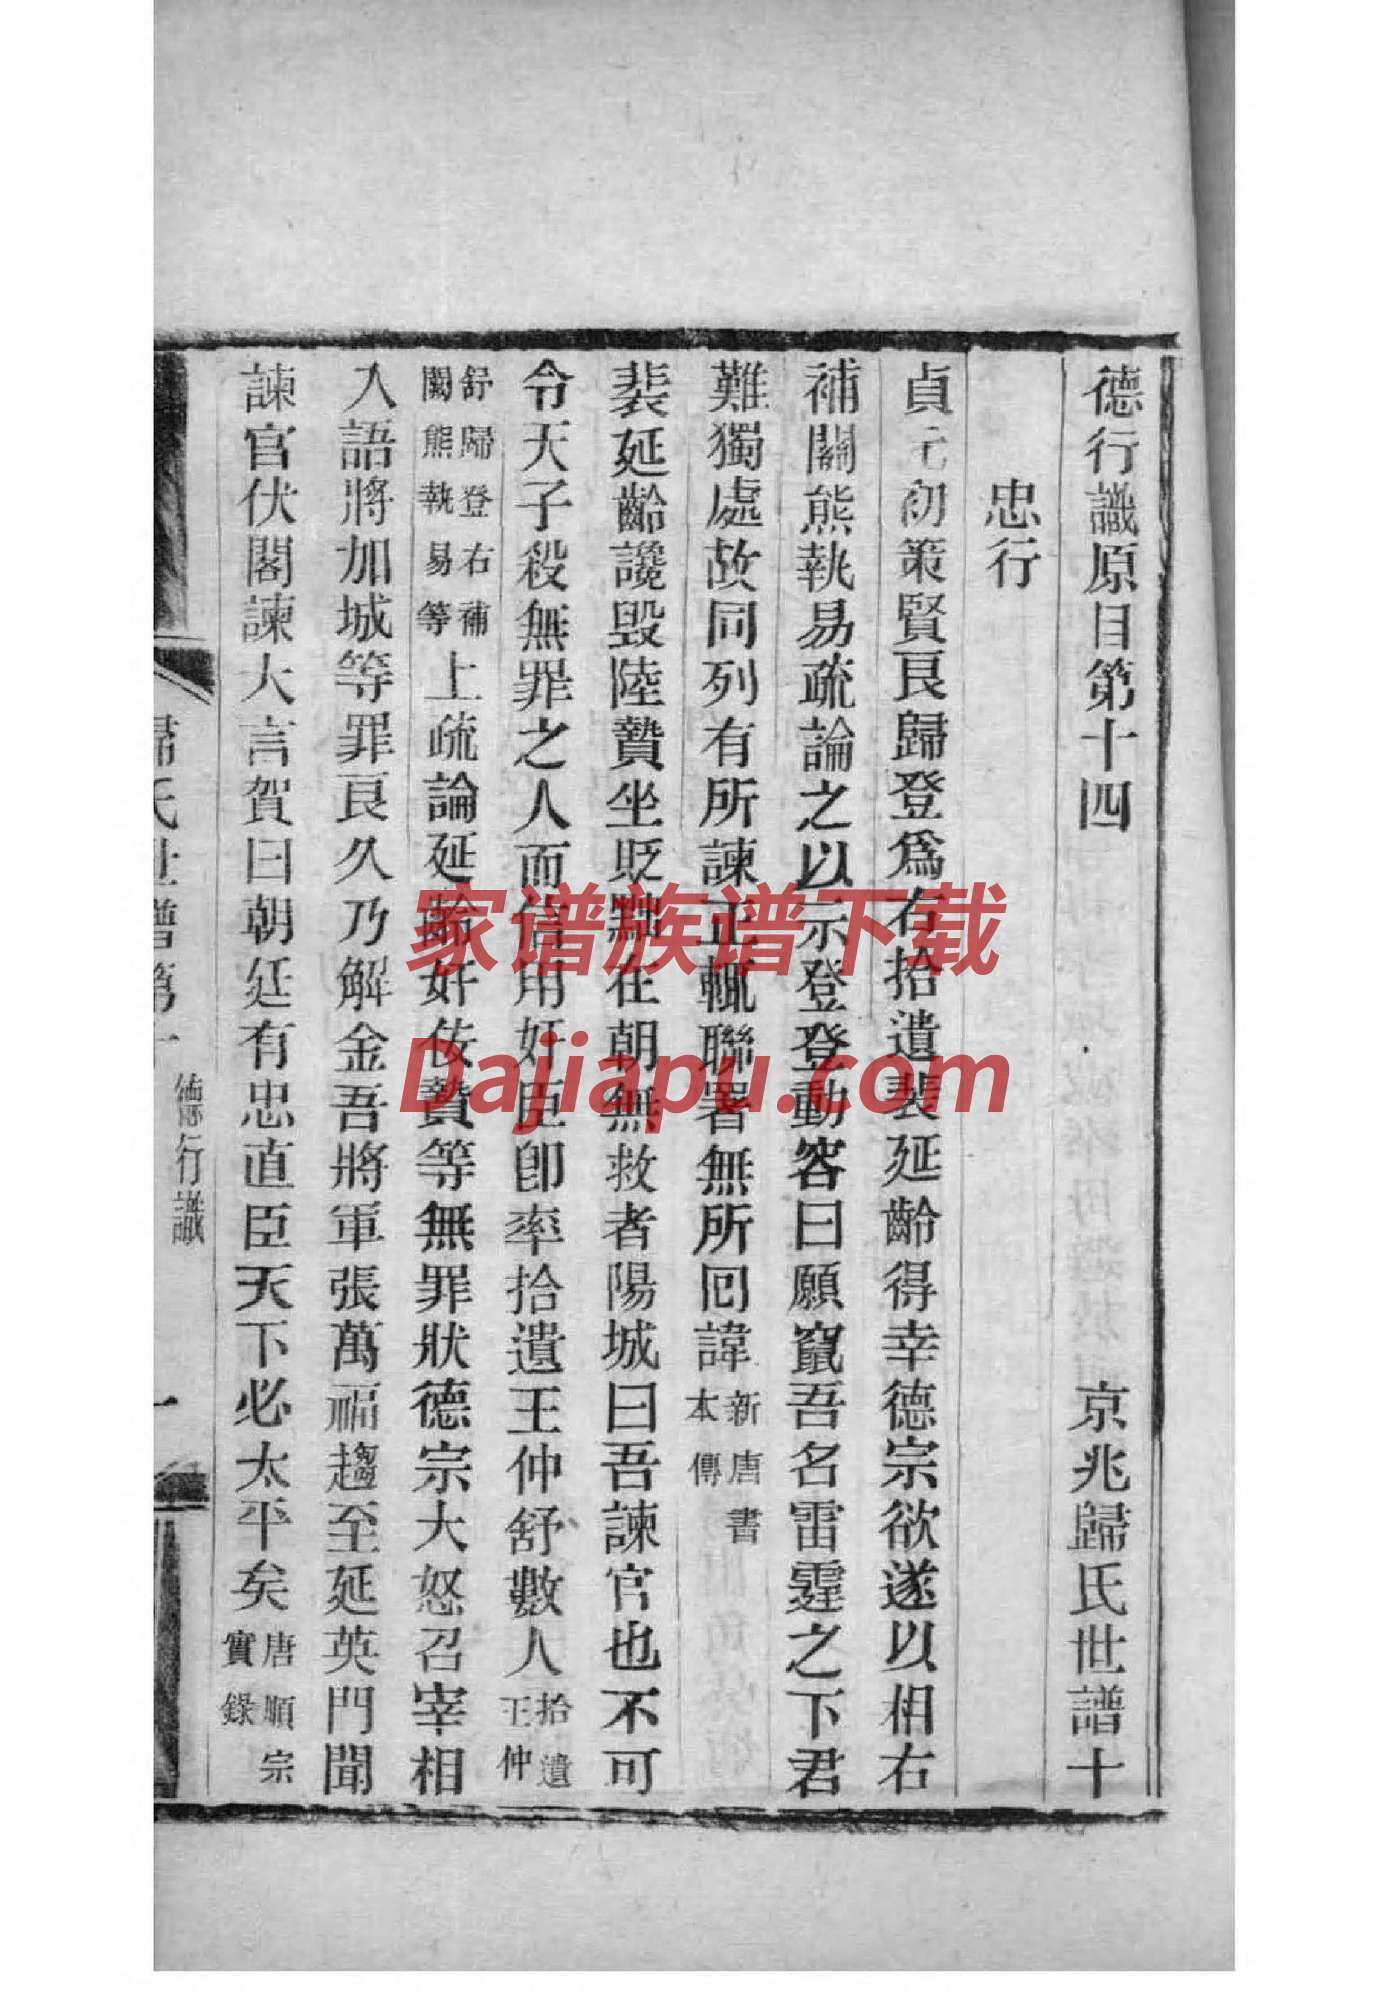 德行識原目第十四　京兆歸氏世譜十
忠行
貞元初策賢良歸登爲右拾遺裴延齡得幸德宗欲遂以相右
補闕熊執易疏論之以示登登動容曰願竄吾名雷霆之下君
難獨處故同列有所諫正輒聯署無所回諱新唐書本傳
裴延齡讒毀陸贄坐貶黜在朝無救者陽城曰吾諫官也不可
令天子殺無罪之人而信用奸臣卽率拾遺王仲舒數人拾遺王仲
舒歸登右補闕熊執易等上疏論延齡奸佞贄等無罪狀德宗大怒召宰相
入語將加城等罪良久乃解金吾將軍張萬福趨至延英門聞
諫官伏閤諫大言賀曰朝廷有忠直臣天下必太平矣唐順宗實錄
歸氏世譜第十　德行識　一
家谱族谱下载
Dajiapu.com